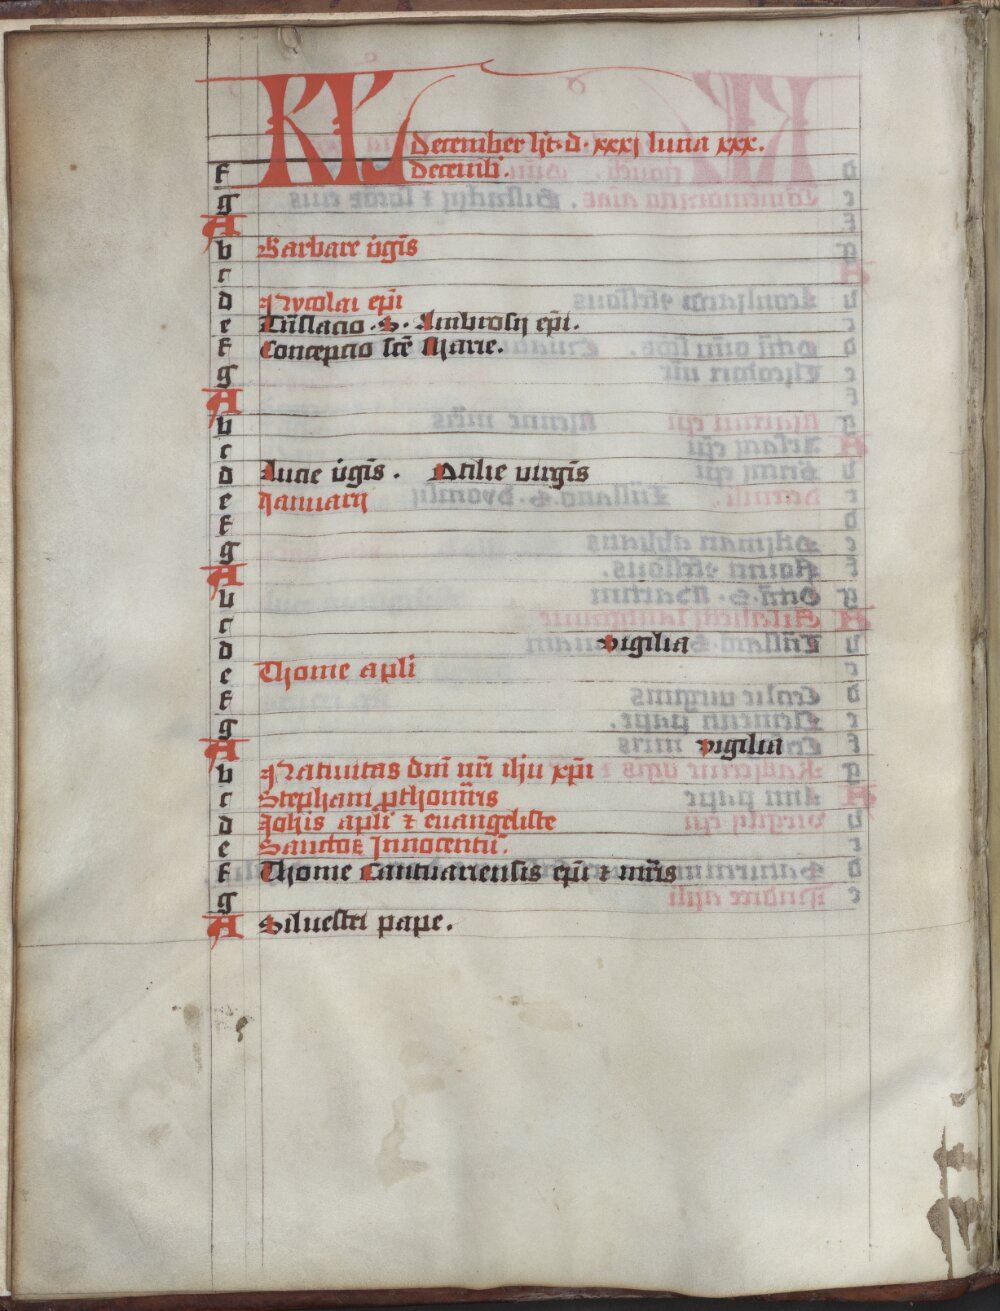 KL december h̄t · d · xxxj luna xxx.
F decemb̄.
g
A
b Barbare v̄gīs
c
d Nycolai ep̄i
e Tr̄slacio · S · Ambrosij ep̄i.
F Concepcio sc̄e Marie.
g
A
b
c
d Lucie v̄gīs. Otilie virgīs
e Januarij
F
g
A
b
c
d vigilia
e Thome apl̄i
F
g
A vigilia
b Natiuitas dn̄i nr̄i ih̄u xp̄i
c Stephani ꝓthom̄ris
d Joh̄is apl̄i ⁊ euangeliste
e Sanctoꝝ Innocentū.
F Thome Cantuariensis ep̄i ⁊ mr̄is
g
A Siluestri pape.